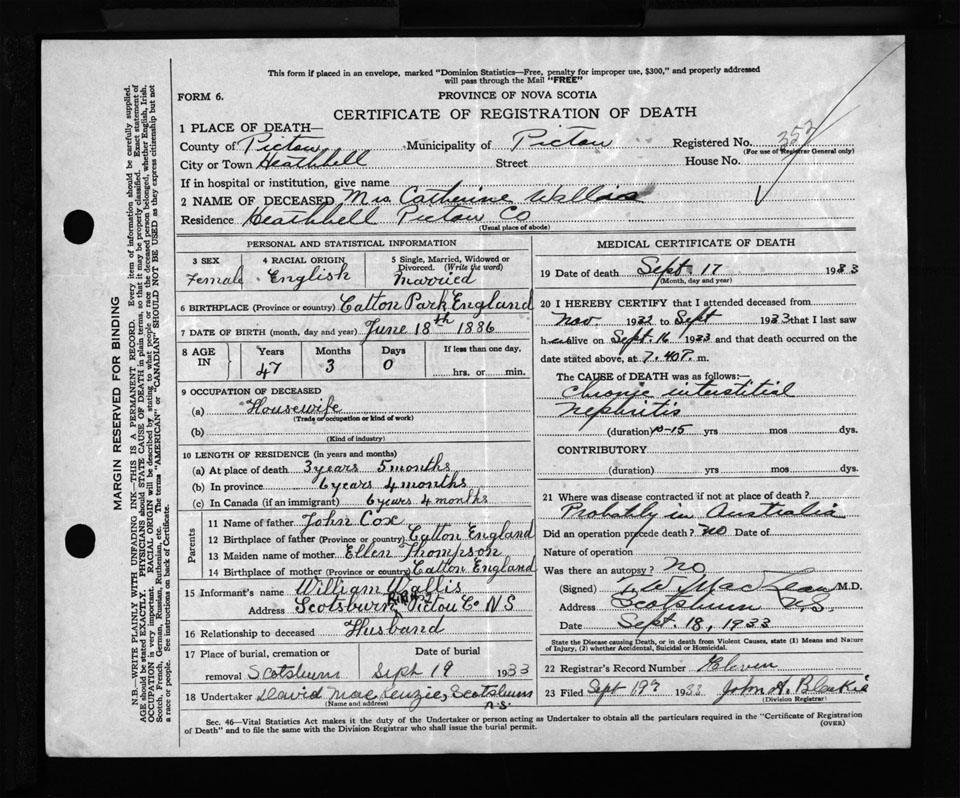 This form if placed in an envelope, marked "Dominion Statistics—Free, penalty for improper use, $300," and properly addressed
will pass through the Mail "FREE"
FORM 6.
PROVINCE OF NOVA SCOTIA
CERTIFICATE OF REGISTRATION OF DEATH
1 PLACE OF DEATH—
County of Pictou Municipality of Pictou Registered No. 352
(For use of Registrar General only)
City or Town Heathbell Street House No.
If in hospital or institution, give name
2 NAME OF DECEASED Mrs Catherine Wallis
Residence Heathbell Pictou Co
(Usual place of abode)
PERSONAL AND STATISTICAL INFORMATION
3 SEX
Female
4 RACIAL ORIGIN
English
5 Single, Married, Widowed or
Divorced. (Write the word)
Married
6 BIRTHPLACE (Province or country) Calton Park England
7 DATE OF BIRTH (month, day and year) June 18th 1886
8 AGE IN
Years Months Days If less than one day,
47 3 0 hrs. or min.
9 OCCUPATION OF DECEASED
(a) Housewife
(Trade or occupation or kind of work)
(b)
(Kind of industry)
10 LENGTH OF RESIDENCE (in years and months)
(a) At place of death 3 years 5 months
(b) In province 6 years 4 months
(c) In Canada (if an immigrant) 6 years 4 months
Parents
11 Name of father John Cox
12 Birthplace of father (Province or country) Calton England
13 Maiden name of mother Ellen Thompson
14 Birthplace of mother (Province or country) Calton England
15 Informant's name William Wallis
Address Scotsburn Pictou Co N S
16 Relationship to deceased Husband
17 Place of burial, cremation or Date of burial
removal Scotsburn Sept 19 1933
18 Undertaker David MacKenzie, Scotsburn
(Name and address) N.S.
MEDICAL CERTIFICATE OF DEATH
19 Date of death Sept. 17 1933
(Month, day and year)
20 I HEREBY CERTIFY that I attended deceased from
Nov. 1932 to Sept 1933 that I last saw
her alive on Sept. 16 1933 and that death occurred on the
date stated above, at 7.40 P. m.
The CAUSE of DEATH was as follows:—
Chronic interstitial
nephritis
(duration) 10-15 yrs mos dys.
CONTRIBUTORY
(duration) yrs mos dys.
21 Where was disease contracted if not at place of death?
Probably in Australia
Did an operation precede death? No Date of
Nature of operation
Was there an autopsy? No
(Signed) MacLean M.D.
Address Scotsburn N.S.
Date Sept. 18, 1933
State the Disease causing Death, or in death from Violent Causes, state (1) Means and Nature
of Injury, (2) whether Accidental, Suicidal or Homicidal.
22 Registrar's Record Number Eleven
23 Filed Sept 19th 1933 John A. Blaikie
(Division Registrar)
Sec. 46—Vital Statistics Act makes it the duty of the Undertaker or person acting as Undertaker to obtain all the particulars required in the "Certificate of Registration
of Death" and to file the same with the Division Registrar who shall issue the burial permit.
(OVER)
MARGIN RESERVED FOR BINDING
N.B.—WRITE PLAINLY WITH UNFADING INK—THIS IS A PERMANENT RECORD. Every item of information should be carefully supplied.
AGE should be stated EXACTLY. PHYSICIANS should STATE CAUSE OF DEATH in plain terms, so that it may be properly classified. Exact statement of
OCCUPATION is very important. RACIAL ORIGIN will be described by stating to what people or race the deceased person belonged, whether English, Irish,
Scotch, French, German, Russian, Ruthenian, etc. The terms "AMERICAN" or "CANADIAN" SHOULD NOT BE USED as they express citizenship but not
a race or people. See instructions on back of Certificate.